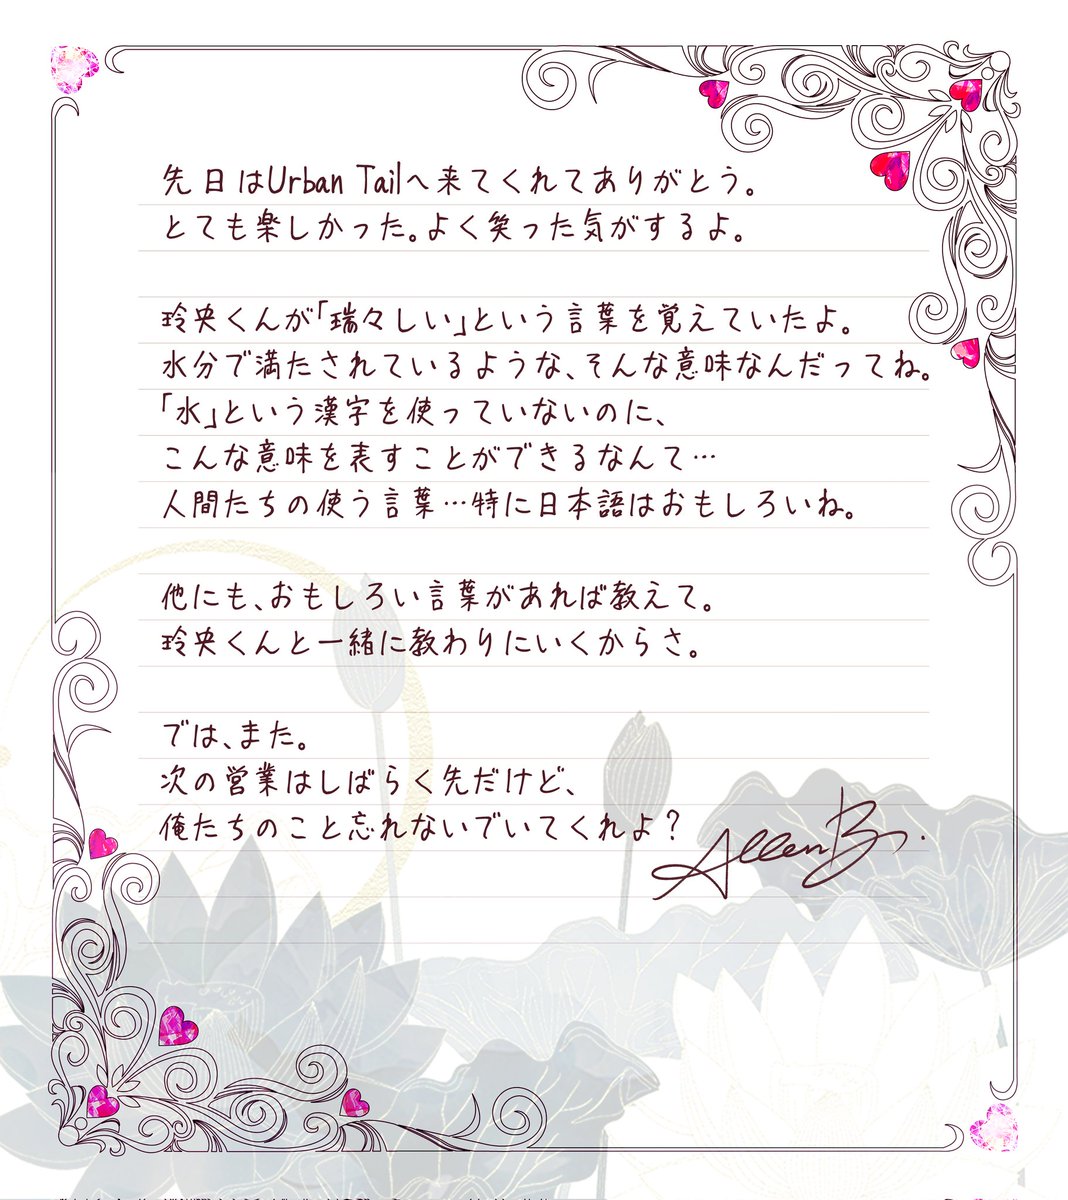 先日はUrban Tailへ来てくれてありがとう。
とても楽しかった。よく笑った気がするよ。
玲央くんが「瑞々しい」という言葉を覚えていたよ。
水分で満たされているような、そんな意味なんだってね。
「水」という漢字を使っていないのに、
こんな意味を表すことができるなんて…
人間たちの使う言葉…特に日本語はおもしろいね。
他にも、おもしろい言葉があれば教えて。
玲央くんと一緒に教わりにいくからさ。
では、また。
次の営業はしばらく先だけど、
俺たちのこと忘れないでいてくれよ?
Allen B.